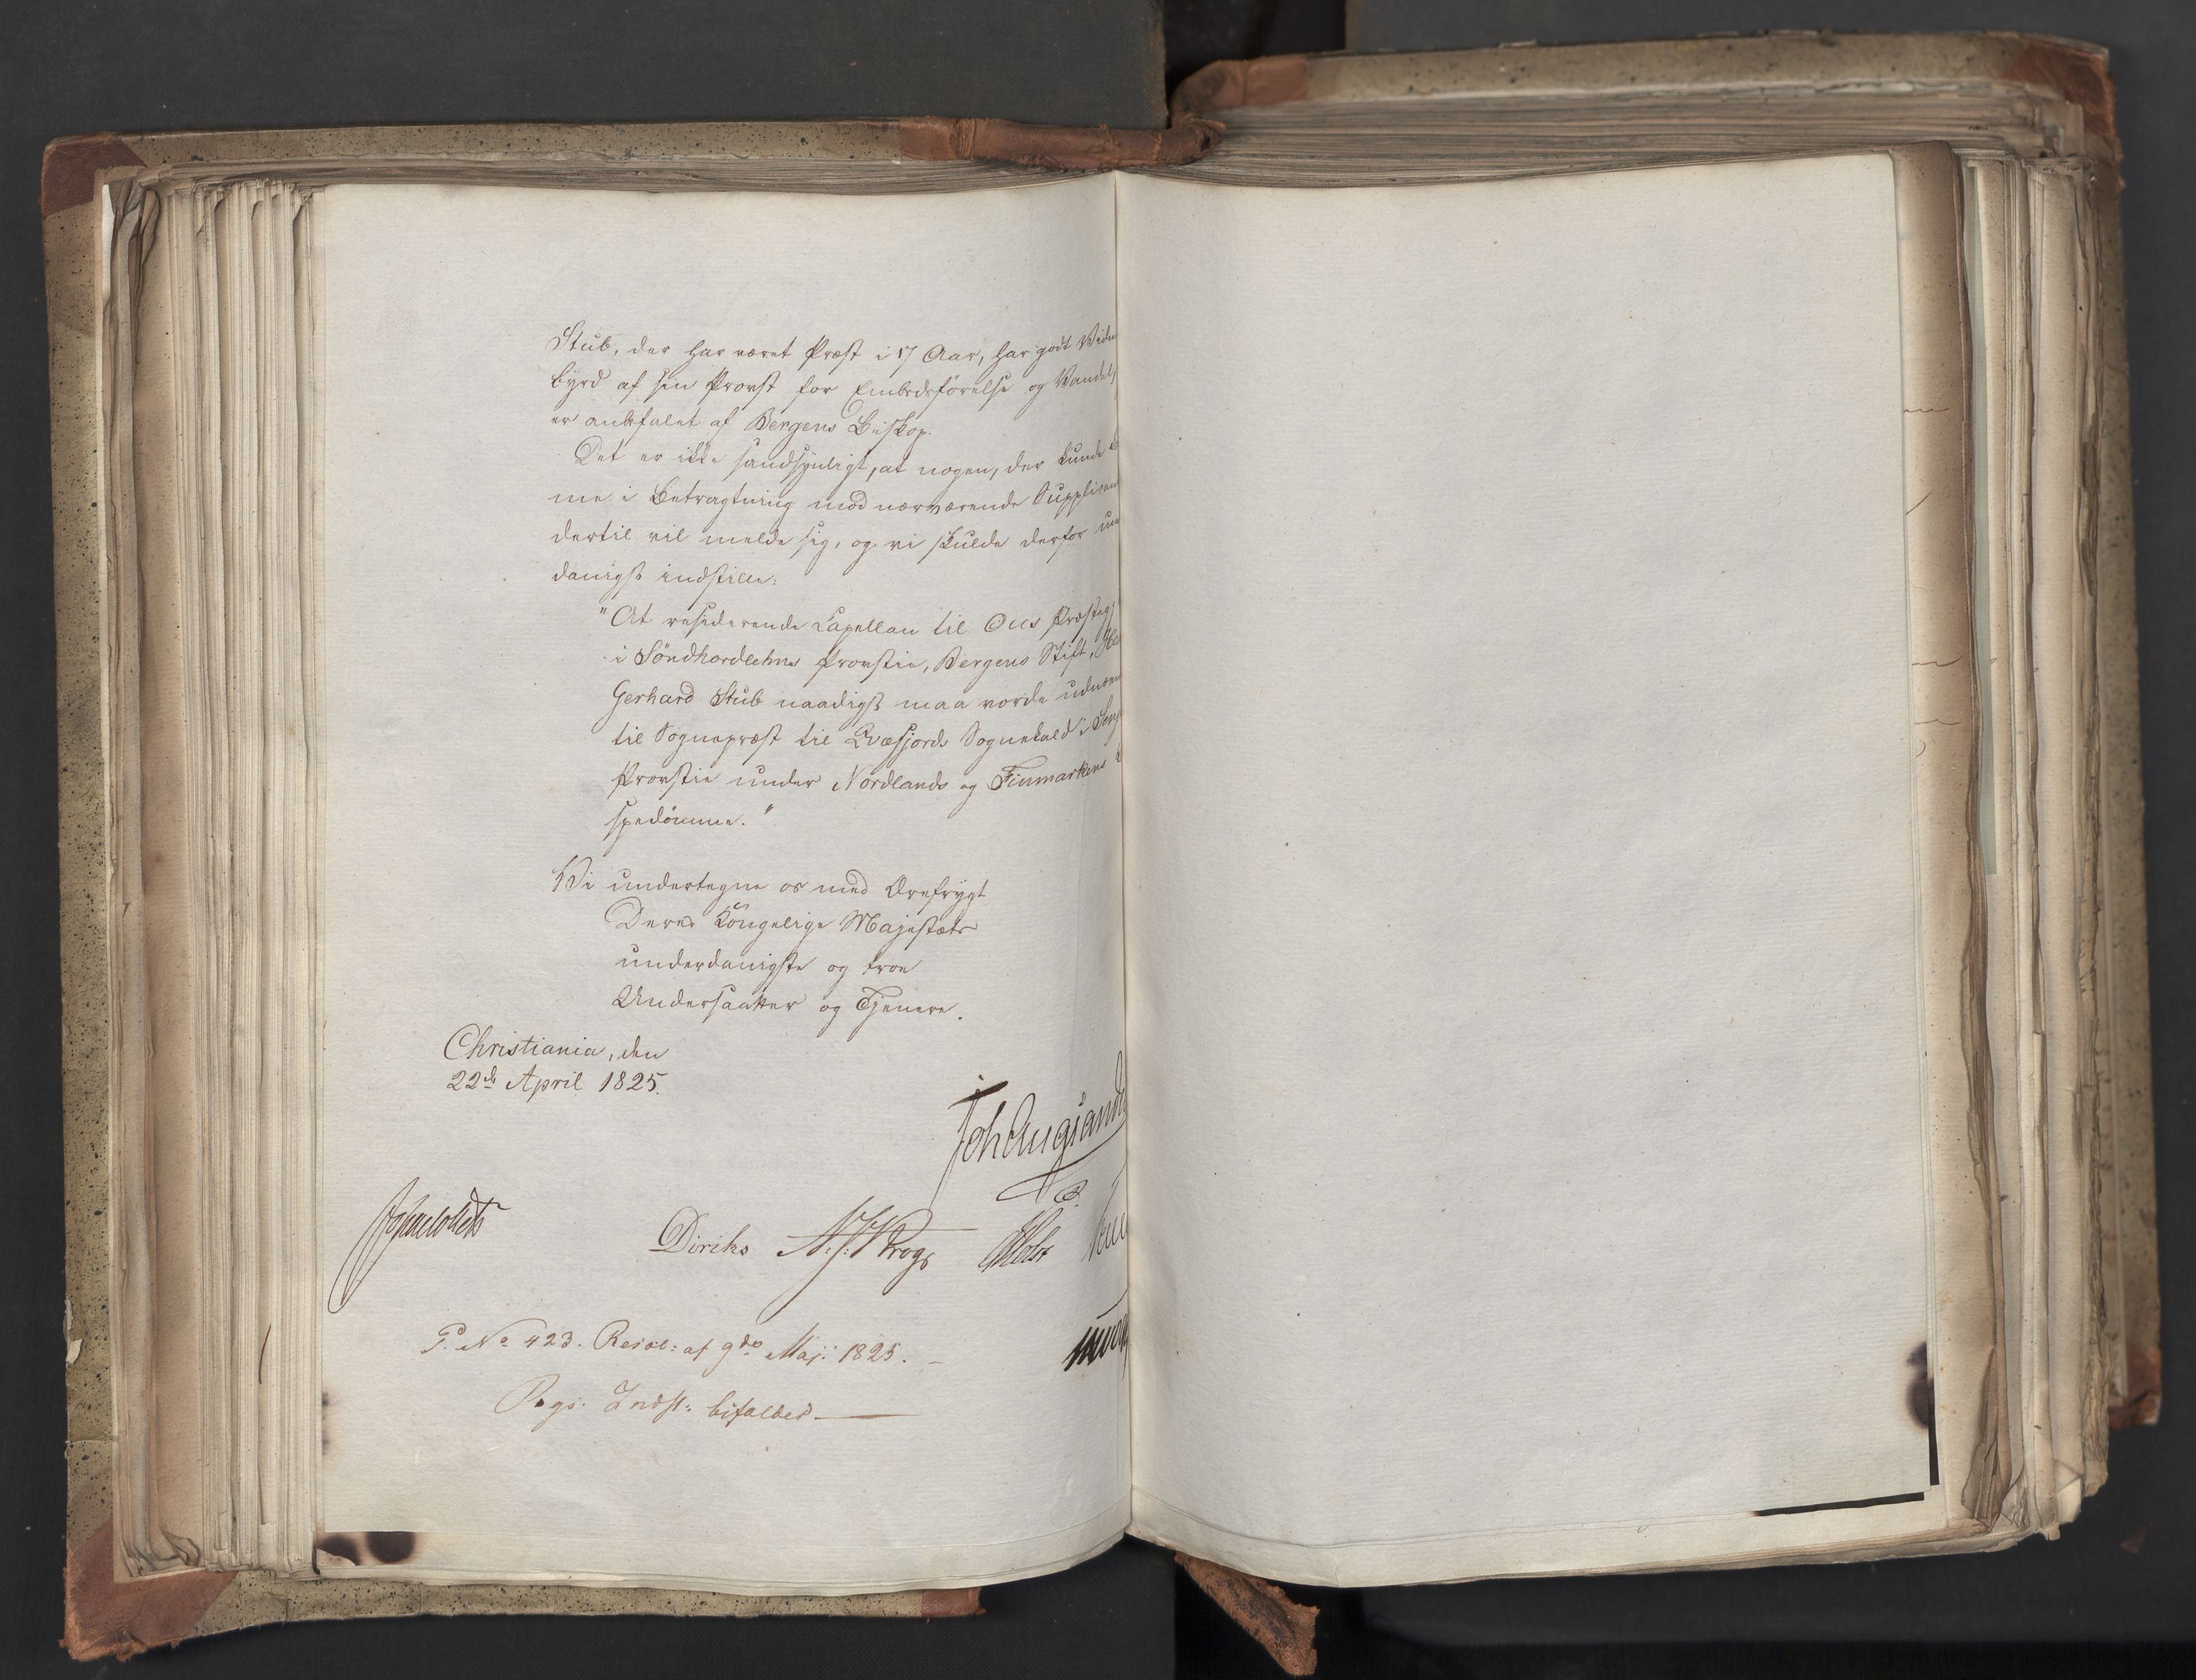 Stub, der har været Præst i 17 Aar, har godt Vidn
byrd af sin Provst for Embedsførelse og Vandel,
er anbefalet af Bergens Biskop.
Det er ikke sandsynligt, at nogen, der kunde
me i Betragtning mod nærværende Supplican
dertil vil melde sig, og vi skulde derfor un
danigst indstille:
"At residerende Capellan til Ous Præsteg
i Söndhordlehns Provstie, Bergens Stift,
Gerhard Stub naadigst maa vorde udnævn
til Sognepræst til Qvæfjords Sognekald i Senj
Provstie under Nordlands og Finmarkens
spedömme."
Vi undertegne os med Ærefrygt
Deres Kongelige Majestæts
underdanigste og troe
Undersaatter og Tjenere.
Christiania, den
22de April 1825.
Joh Aug Sand
Diriks N: J: Krogs Holst
P. No 423. Resol: af 9de Maji 1825.
Regs. Indst: bifaldes